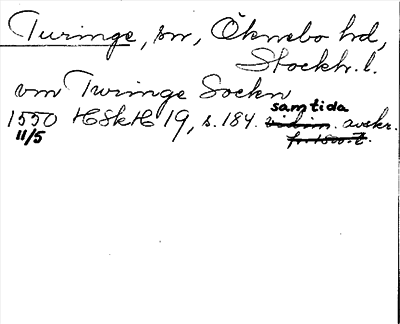 Turinge, sn, Öknebo hd,
Stockh. l.
vm Twringe Sockn
samtida
1550 HSkH 19, s. 184. vidim. avskr.
11/5 fr. 1800-t.